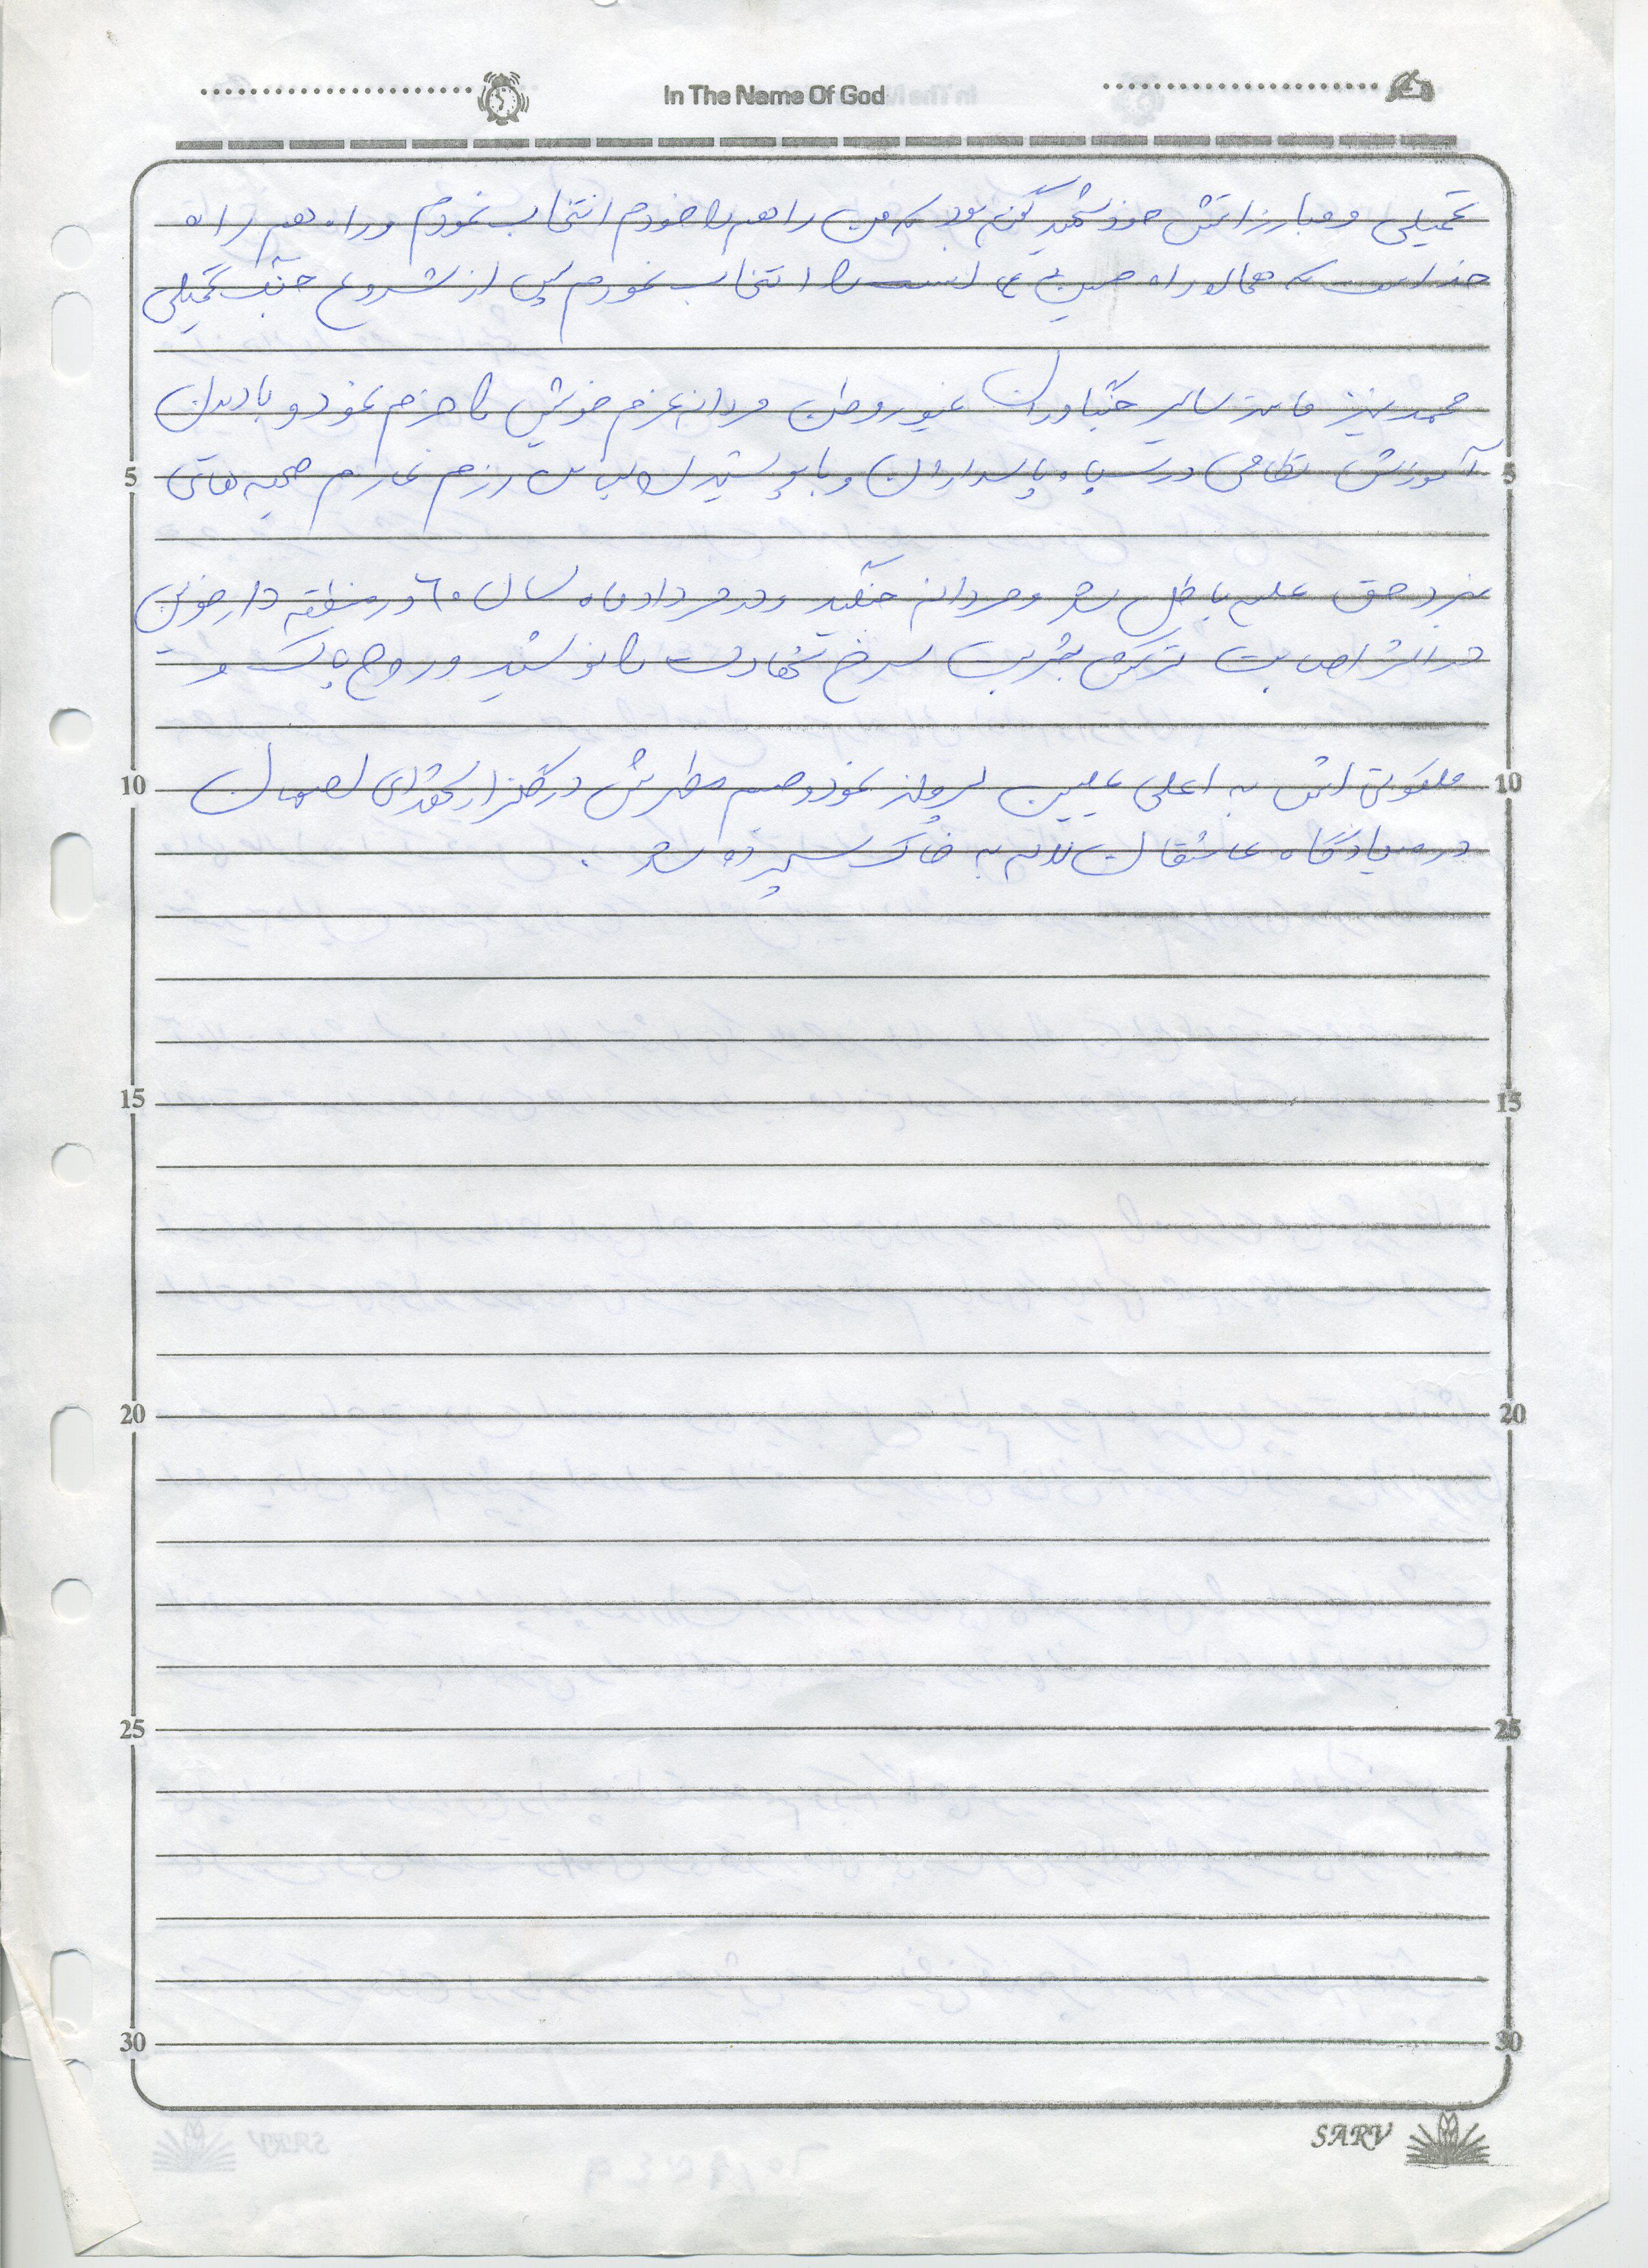 In The Name Of God
تحمیلی و مبارزاتش خود شهید گفته بود که من راهم را خودم انتخاب نمودم و راه هم راه
خداست که همان راه حسین ع است را انتخاب نمودم پس از شروع جنگ تحمیلی
محمد نیز مانند سایر جنگاوران غیور وطن مردانه عزم خویش را جزم نمود و با دیدن
5 آموزش نظامی در سپاه پاسداران و با پوشیدن لباس رزم عازم جبهه های 5
نبرد حق علیه باطل شد و مردانه جنگید و در مرداد ماه سال ٦٠ در منطقه دارخوین
در اثر اصابت ترکش شربت سرخ شهادت را نوشید و روح پاک و
10 ملکوتی اش به اعلی علیین پرواز نمود و جسم مطهرش در گلزار شهدای اصفهان 10
در میادگاه عاشقان لاله به خاک سپرده شد .
15 15
20 20
25 25
30 30
SARV